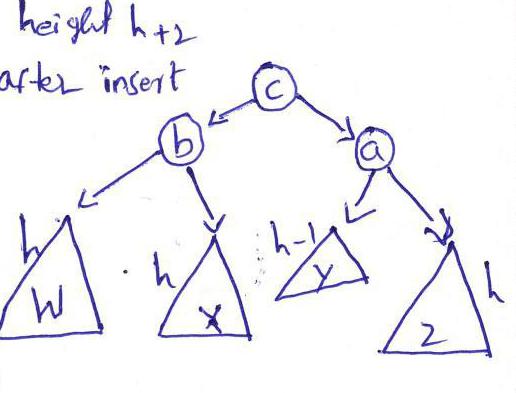 height h+2
after insert
c
b
a
h
h
h-1
h
W
X
Y
Z